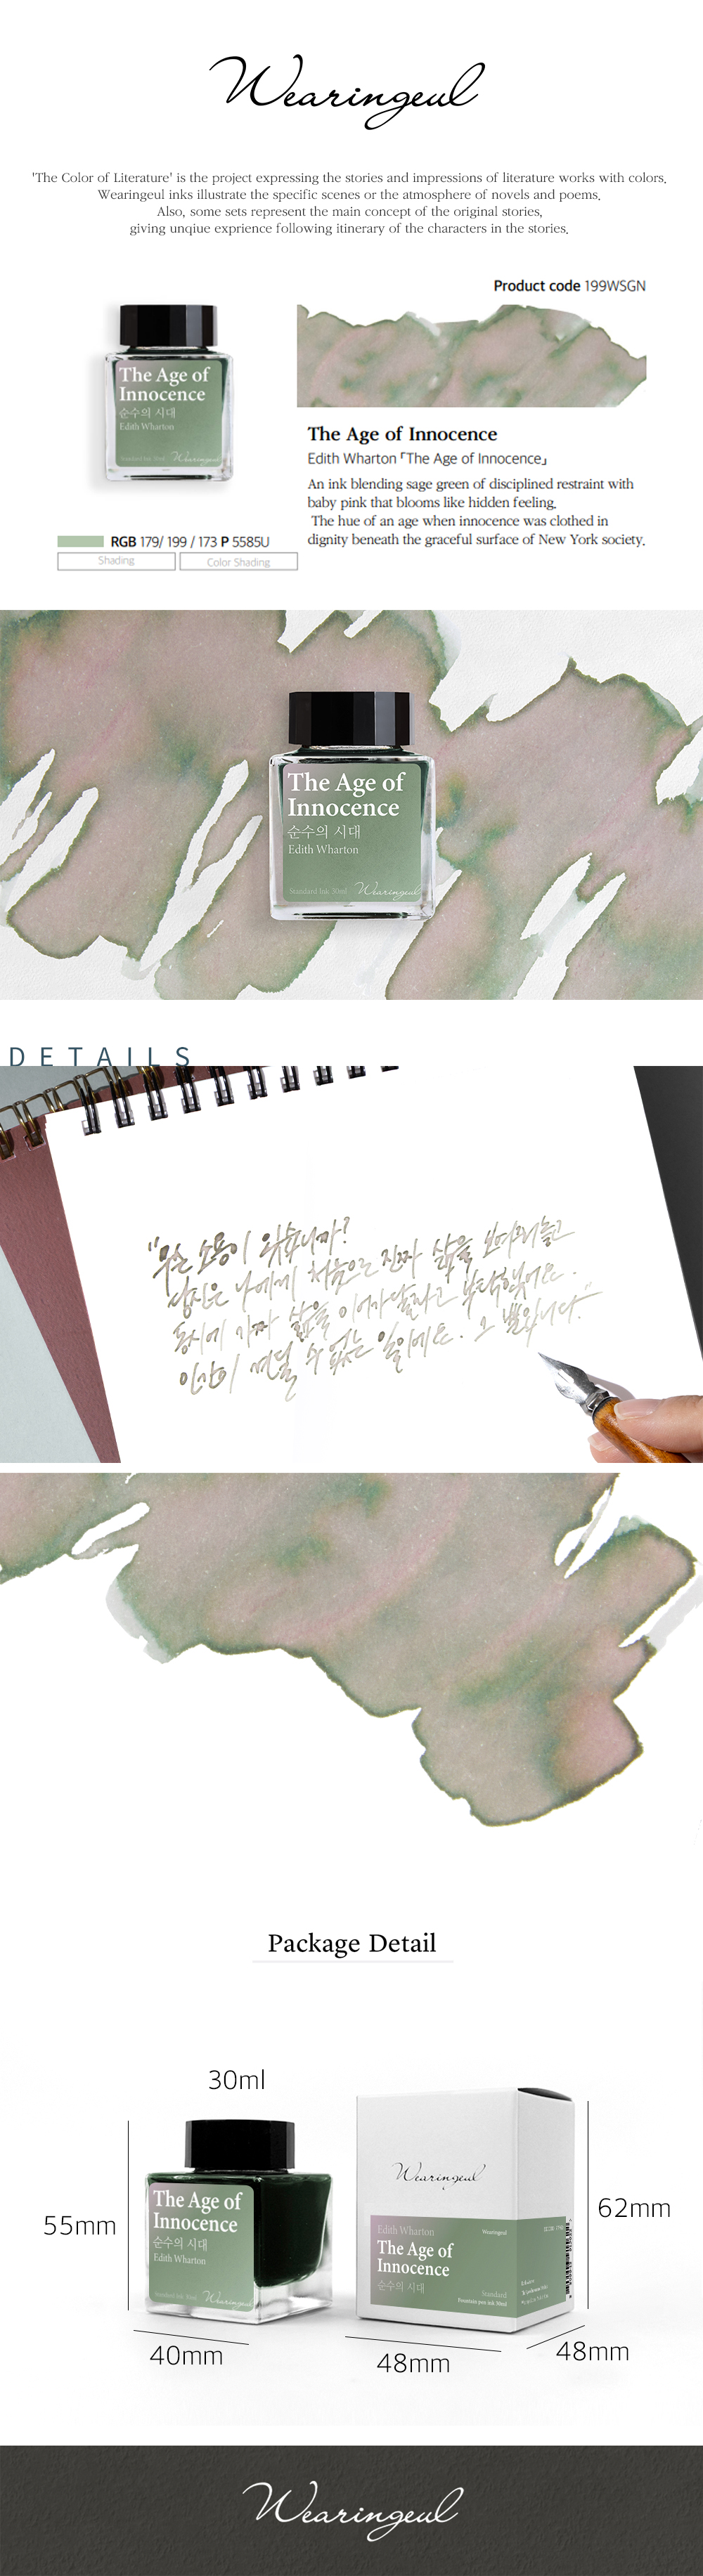 Wearingeul
'The Color of Literature' is the project expressing the stories and impressions of literature works with colors.
Wearingeul inks illustrate the specific scenes or the atmosphere of novels and poems.
Also, some sets represent the main concept of the original stories,
giving unqiue exprience following itinerary of the characters in the stories.
Product code 199WSGN
The Age of
Innocence
순수의 시대
Edith Wharton
Standard Ink 30ml Wearingeul
The Age of Innocence
Edith Wharton「The Age of Innocence」
An ink blending sage green of disciplined restraint with
baby pink that blooms like hidden feeling.
The hue of an age when innocence was clothed in
dignity beneath the graceful surface of New York society.
RGB 179/ 199 / 173 P 5585U
Shading
Color Shading
The Age of
Innocence
순수의 시대
Edith Wharton
Standard Ink 30ml Wearingeul
DETAILS
"무슨 소용이 있습니까?
당신은 나에게 처음으로 진짜 삶을 보여줬고
동시에 가짜 삶을 이어가달라고 부탁했어요.
인간이 견딜 수 없는 일이에요. 그 뿐입니다."
Package Detail
30ml
55mm
The Age of
Innocence
순수의 시대
Edith Wharton
Standard Ink 30ml Wearingeul
40mm
Wearingeul
Edith Wharton
Wearingeul
The Age of
Innocence
순수의 시대
Standard
Fountain pen ink 30ml
62mm
48mm
48mm
Wearingeul